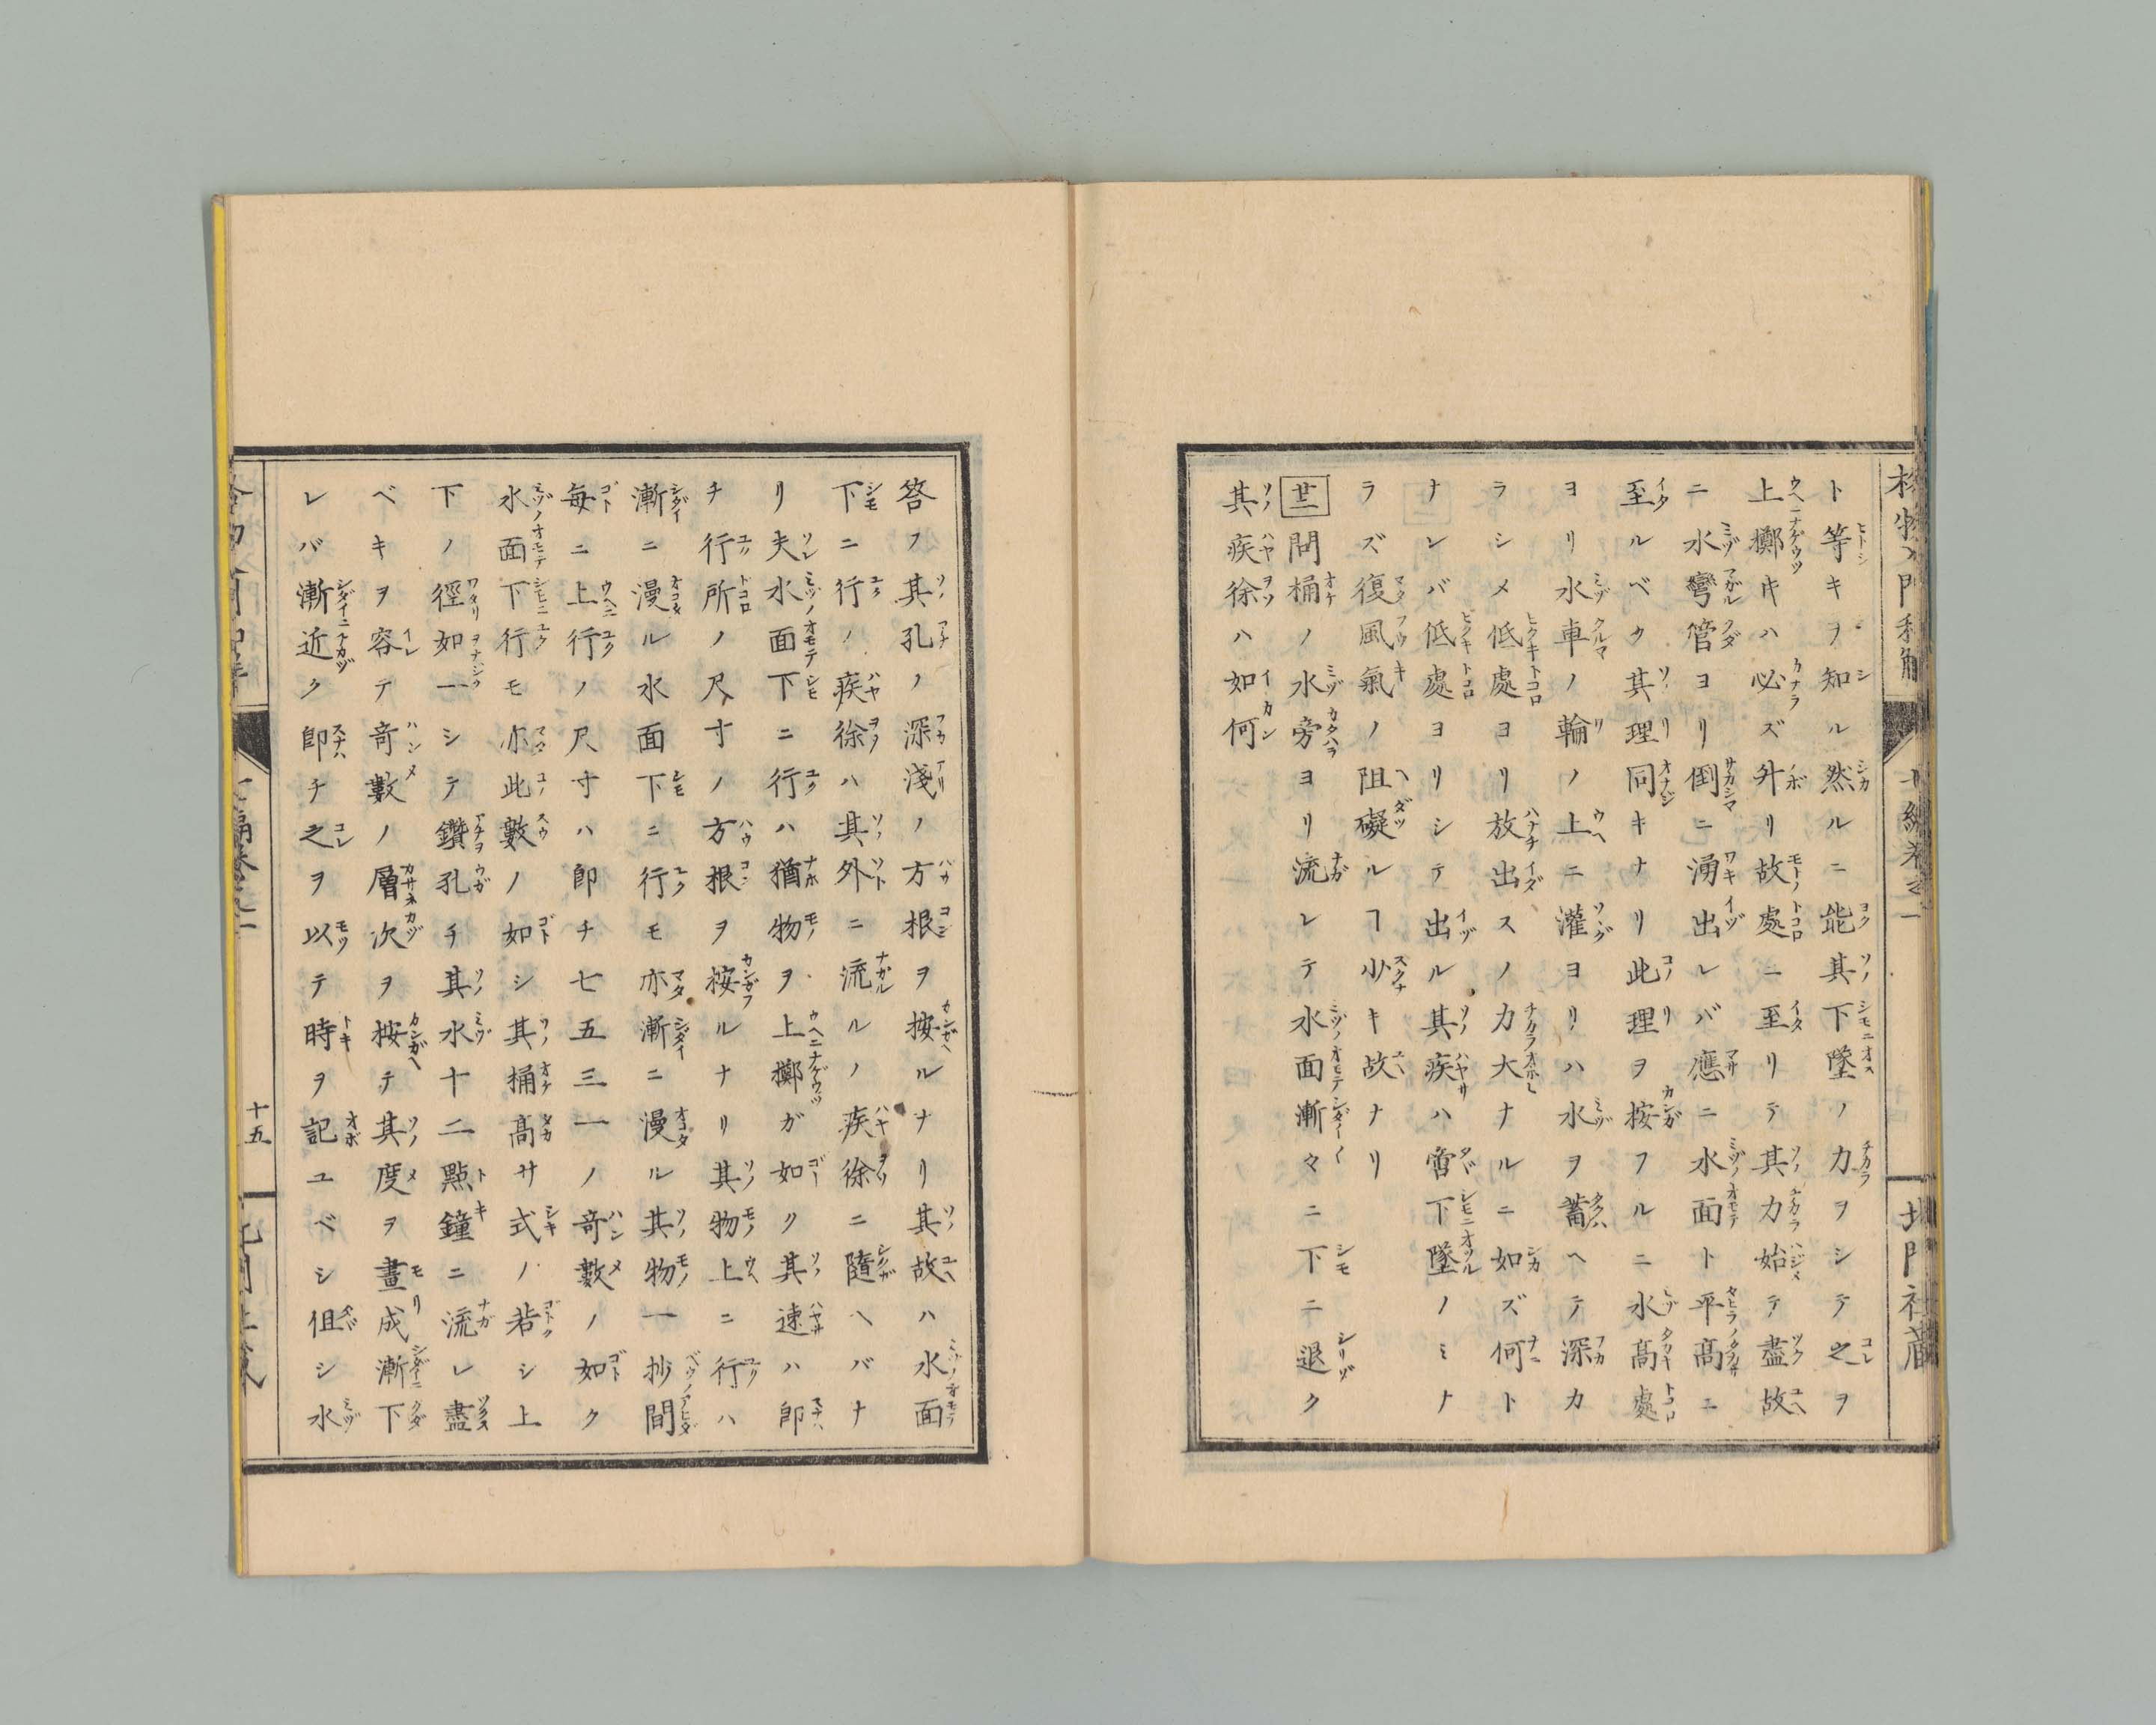 ト等キヲ知ル然ルニ能其下墜ノ力ヲシテ之ヲ
上擲キハ必ズ升リ故處ニ至リテ其力始テ盡故
ニ水彎管ヨリ倒ニ湧出レバ應ニ水面ト平高ニ
至ルベク其理同キナリ此理ヲ按フルニ水高處
ヨリ水車ノ輪ノ上ニ灌ヨリハ水ヲ蓄ヘテ深カ
ラシメ低處ヨリ放出スノ力大ナルニ如ズ何ト
ナレバ低處ヨリシテ出ル其疾ハ啻下墜ノミナ
ラズ復風氣ノ阻礙ルヿ少キ故ナリ
廿二 問桶ノ水旁ヨリ流レテ水面漸々ニ下ニ退ク
其疾徐ハ如何
答フ其孔ノ深淺ノ方根ヲ按ルナリ其故ハ水面
下ニ行ノ疾徐ハ其外ニ流ルノ疾徐ニ隨ヘバナ
リ夫水面下ニ行ハ猶物ヲ上擲ガ如ク其速ハ即
チ行所ノ尺寸ノ方根ヲ按ルナリ其物上ニ行ハ
漸ニ漫ル水面下ニ行モ亦漸ニ漫ル其物一抄間
每ニ上行ノ尺寸ハ即チ七五三一ノ奇數ノ如ク
水面下行モ亦此數ノ如シ其桶高サ式ノ若シ上
下ノ徑如一シテ鑽孔チ其水十二點鐘ニ流レ盡
ベキヲ容テ奇數ノ層次ヲ按テ其度ヲ畫成漸下
レバ漸近ク即チ之ヲ以テ時ヲ記ユベシ但シ水
十五